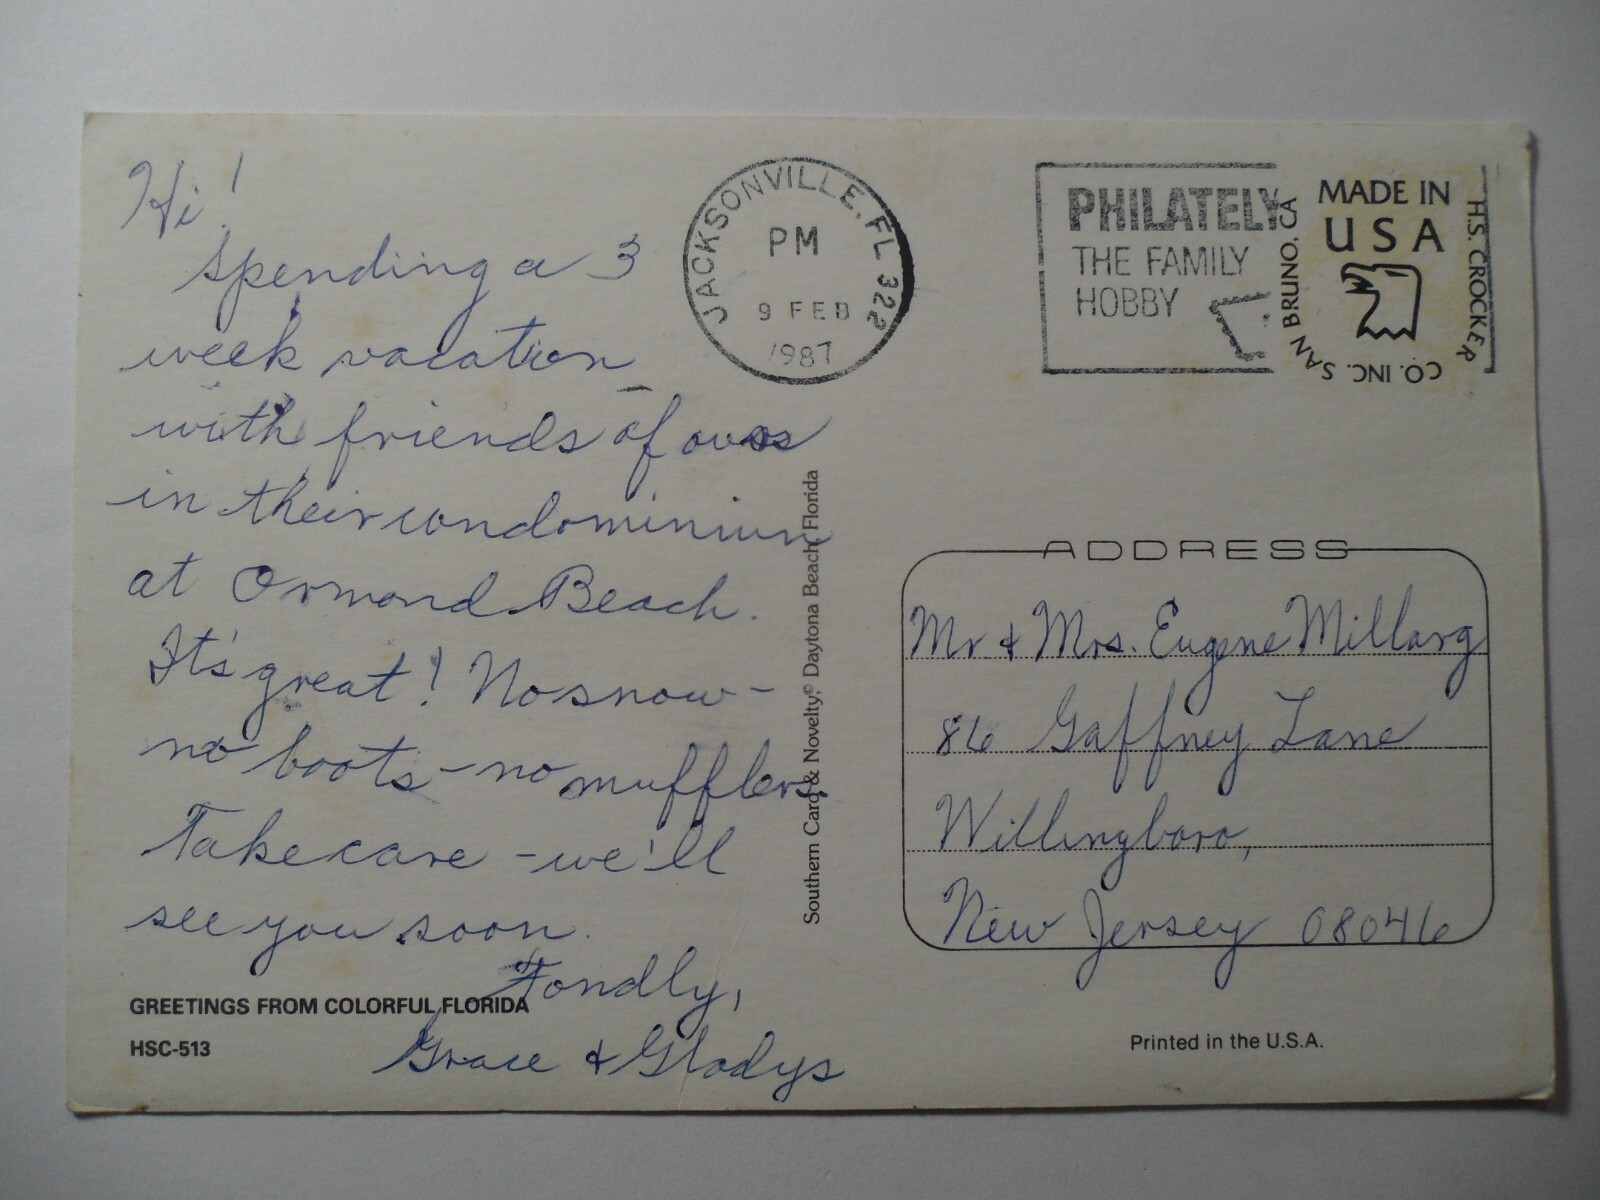 Hi!
Spending a 3
week vacation
with friends of ours
in their condominium
at Ormond Beach.
It's great! No snow -
no boots - no mufflers.
Take care - we'll
see you soon.
Fondly,
Grace & Gladys
GREETINGS FROM COLORFUL FLORIDA
HSC-513
Southern Card & Novelty,© Daytona Beach, Florida
JACKSONVILLE, FL 322
PM
9 FEB
1987
PHILATELY
THE FAMILY
HOBBY
MADE IN
USA
H.S. CROCKER CO. INC. SAN BRUNO, CA
ADDRESS
Mr & Mrs. Eugene Millarg
86 Gaffney Lane
Willingboro,
New Jersey 08046
Printed in the U.S.A.